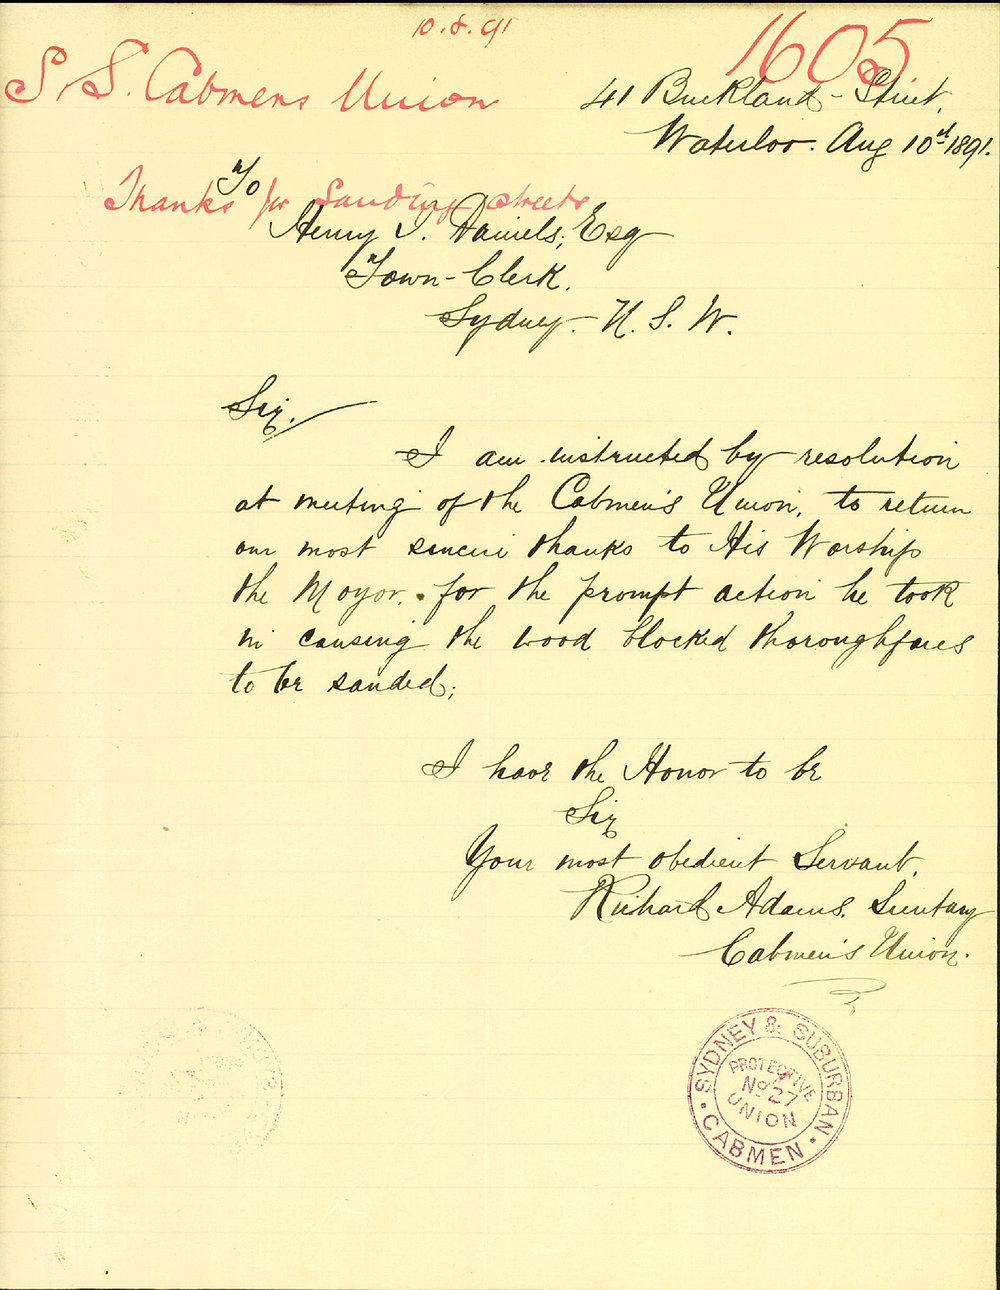 10.8.91
1605
S. S. Cabmens Union
41 Buckland-Street,
Waterloo. Aug 10st 1891.
To
Thanks for Sanding streets
Henry J. Daniels, Esq
Town-Clerk.
Sydney. N. S. W.
Sir.
I am instructed by resolution
at meeting of the Cabmen's Union, to return
our most sincere thanks to His Worship
the Mayor, for the prompt action he took
in causing the wood blocked thoroughfares
to be sanded;
I have the Honor to be
Sir
Your most obedient Servant,
Richard Adams. Secretary
Cabmen's Union.
SYDNEY & SUBURBAN
PROTECTIVE
No 27
UNION
CABMEN